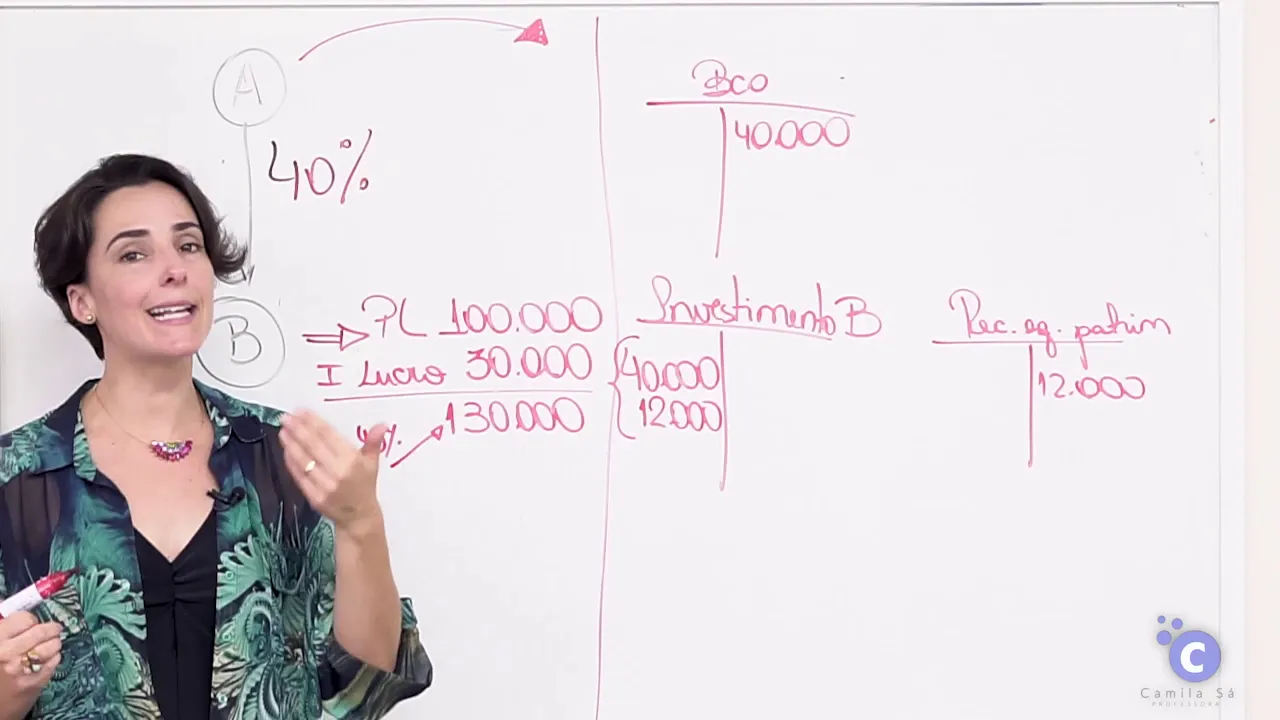 A
40%
B
PL 100.000
I Lucro 30.000
130.000
40%
Bco
40.000
Investimento B
40.000
12.000
Rec. eq. patrim
12.000
C
Camila Sá
PROFESSORA